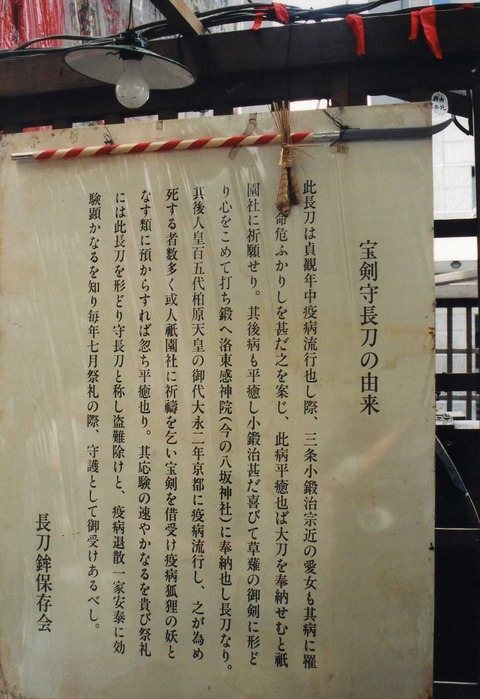 宝剣守長刀の由来
此長刀は貞観年中疫病流行也し際、三条小鍛治宗近の愛女も其病に罹
命危ふかりしを甚だ之を案じ、此病平癒也ば大刀を奉納せむと祇
園社に祈願せり。其後病も平癒し小鍛治甚だ喜びて草薙の御剣に形ど
り心をこめて打ち鍛へ洛東感神院(今の八坂神社)に奉納也し長刀なり。
其後人皇百五代柏原天皇の御代大永二年京都に疫病流行し、之が為め
死する者数多く或人祇園社に祈祷を乞い宝剣を借受け疫病狐狸の妖と
なす類に預からすれば忽ち平癒也り。其応験の速やかなるを貴び祭礼
には此長刀を形どり守長刀と称し盗難除けと、疫病退散一家安泰に効
験顕かなるを知り毎年七月祭礼の際、守護として御受けあるべし。
長刀鉾保存会